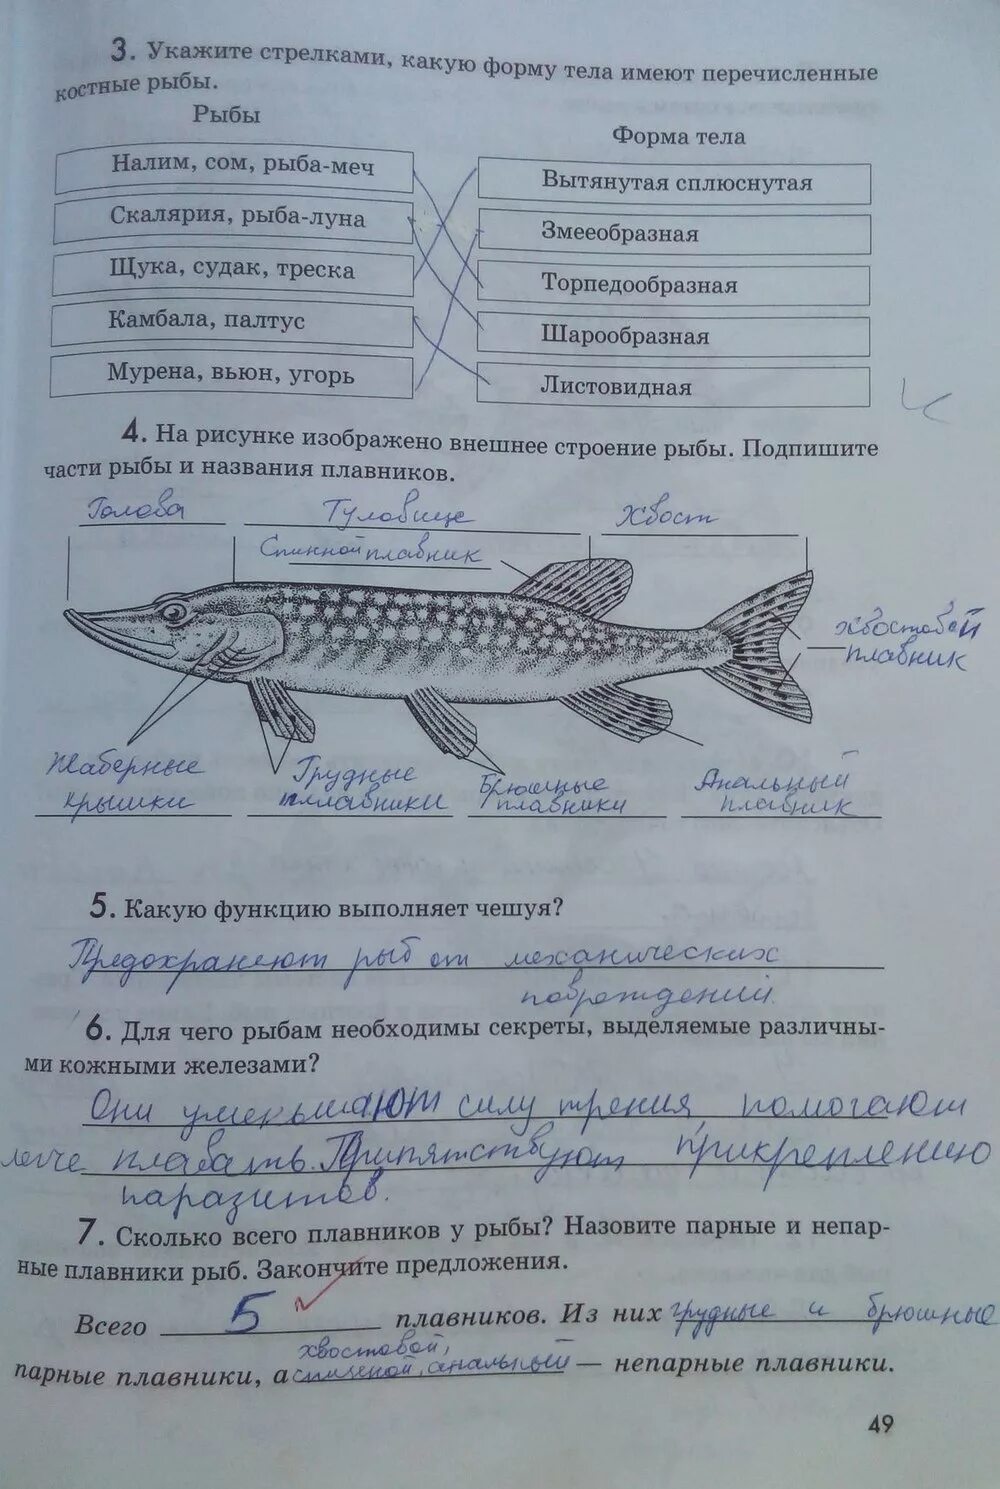 3. Укажите стрелками, какую форму тела имеют перечисленные
костные рыбы.
Рыбы
Форма тела
Налим, сом, рыба-меч
Вытянутая сплюснутая
Скалярия, рыба-луна
Змееобразная
Щука, судак, треска
Торпедообразная
Камбала, палтус
Шарообразная
Мурена, вьюн, угорь
Листовидная
4. На рисунке изображено внешнее строение рыбы. Подпишите
части рыбы и названия плавников.
Голова Туловище Хвост
Спинной плавник
Хвостовой
плавник
Жаберные
крышки
Грудные
пллавники
Брюшные
плавники
Анальный
плавник
5. Какую функцию выполняет чешуя?
Предохраняют рыб от механических
повреждений.
6. Для чего рыбам необходимы секреты, выделяемые различны-
ми кожными железами?
Они уменьшают силу трения, помогают
легче плавать. Припятствуют прикреплению
паразитов.
7. Сколько всего плавников у рыбы? Назовите парные и непар-
ные плавники рыб. Закончите предложения.
Всего 5 плавников. Из них грудные и брюшные
хвостовой,
парные плавники, а спинной, анальный — непарные плавники.
49